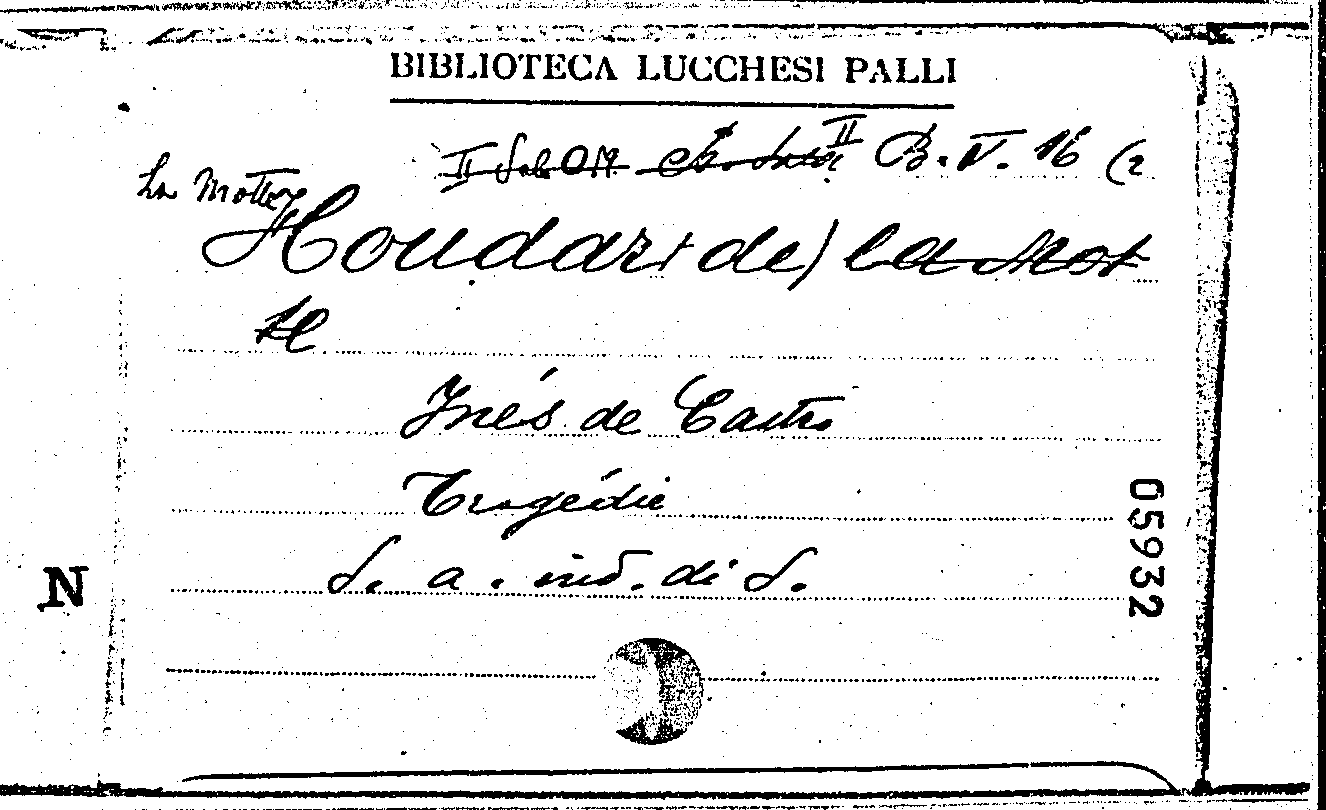 BIBLIOTECA LUCCHESI PALLI
II B. V. 16 (2
La Motte
Houdart de) la Mot
te
Inés de Castro
Tragédie
S. a. ind. di S.
N
05932